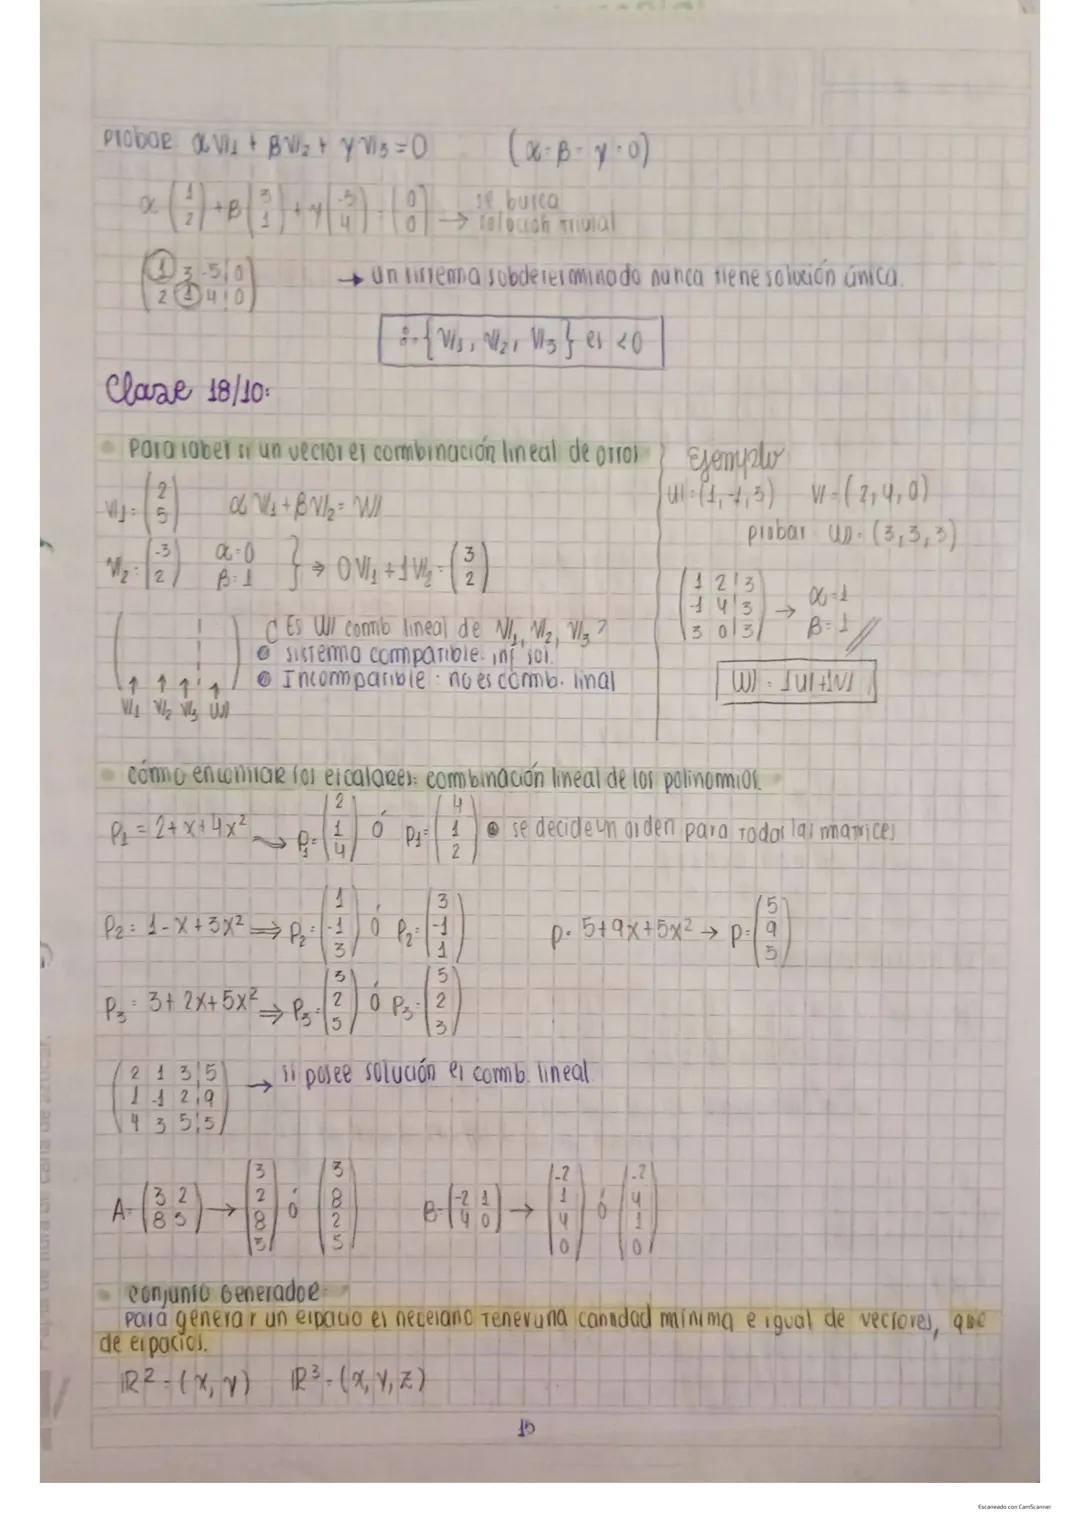 Probar αV1 + βV2 + γV3 = 0 (α=β=γ=0)
α (1 2) + β (3 1) + γ (-5 4) = (0 0) → se busca solución trivial
(1 3 -5 | 0
2 1 4 | 0)
→ un sistema subdeterminado nunca tiene solución única.
∴ {V1, V2, V3} es <0
Clase 18/10:
Para saber si un vector es combinación lineal de otros
V1 = (2 5) αV1 + βV2 = W
V2 = (-3 2) α=0 β=1 } → 0V1 + 1V2 = (3 2)
¿Es W comb lineal de V1, V2, V3?
sistema compatible. inf sol.
Incompatible: no es comb. linal
V1 V2 V3 W
Ejemplo
U=(1,-1,3) V=(2,4,0)
probar W=(3,3,3)
(1 2 | 3
-1 4 | 3
3 0 | 3) → α=1 β=1
W = 1U+1V
cómo encontrar los escalares: combinación lineal de los polinomios.
P1 = 2+x+4x² → P1=(2 1 4) ó P1=(4 1 2) se decide un orden para todas las matrices
P2 = 1-x+3x² ⇒ P2=(1 -1 3) ó P2=(3 -1 1) p= 5+9x+5x² → p=(5 9 5)
P3 = 3+2x+5x² ⇒ P3=(3 2 5) ó P3=(5 2 3)
(2 1 3 | 5
1 -1 2 | 9
4 3 5 | 5)
→ si posee solución es comb. lineal
A=(3 2 8 5) → (3 2 8 5) ó (3 8 2 5) B=(-2 1 4 0) → (-2 1 4 0) ó (-2 4 1 0)
conjunto Generador
para generar un espacio es necesario tener una cantidad mínima e igual de vectores, que
de espacios.
ℝ² = (x, y) ℝ³ = (x, y, z)
15
Escaneado con CamScanner